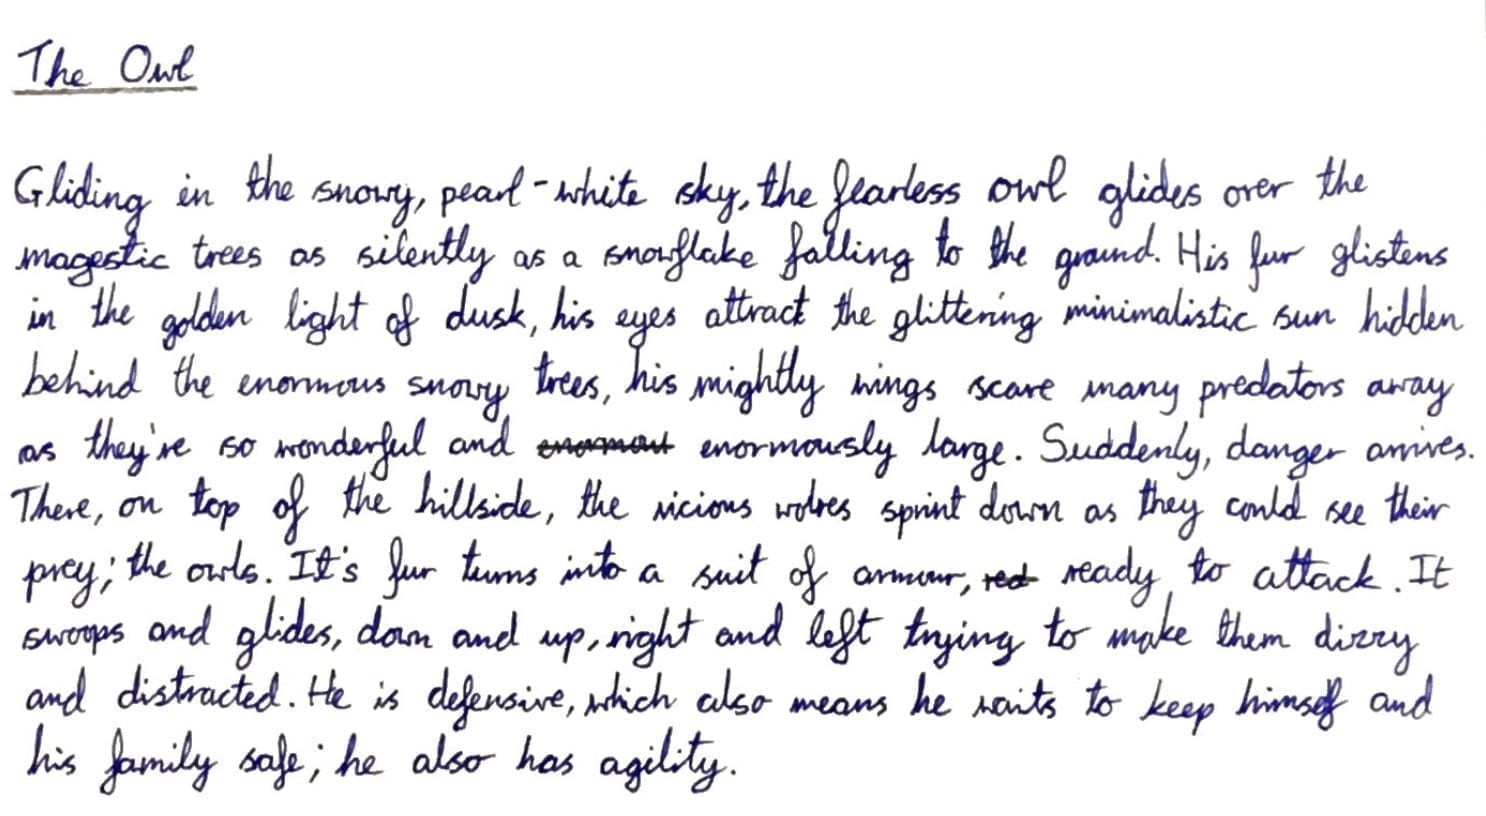 The Owl
Gliding in the snowy, pearl-white sky, the fearless owl glides over the
magestic trees as silently as a snowflake falling to the ground. His fur glistens
in the golden light of dusk, his eyes attract the glittering minimalistic sun hidden
behind the enormous snowy trees, his mightly wings scare many predators away
as they're so wonderful and enormously large. Suddenly, danger arrives.
There, on top of the hillside, the vicious wolves sprint down as they could see their
prey; the owls. It's fur turns into a suit of armour, red ready to attack. It
swoops and glides, down and up, right and left trying to make them dizzy
and distracted. He is defensive, which also means he waits to keep himself and
his family safe; he also has agility.